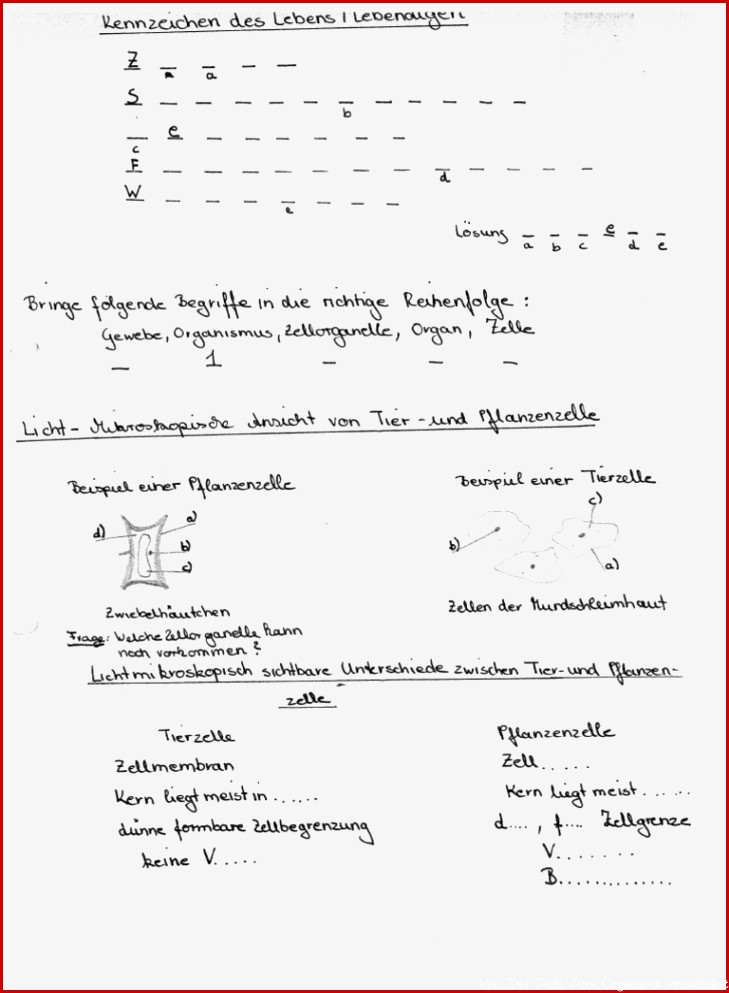 Kennzeichen des Lebens / Lebendigen
Z _ _ _ _
a
S _ _ _ _ _ _ _ _ _ _ _
b
_ e _ _ _ _ _ _
c
F _ _ _ _ _ _ _ _ _ _ _ _
d
W _ _ _ _ _ _ _
e
Lösung _ _ _ e _ _
a b c d e
Bringe folgende Begriffe in die richtige Reihenfolge :
Gewebe, Organismus, Zellorganelle, Organ, Zelle
_ 1 _ _ _
Licht - Mikroskopische Ansicht von Tier - und Pflanzenzelle
Beispiel einer Pflanzenzelle
Beispiel einer Tierzelle
d) a) b) c)
c) b) a)
Zwiebelhäutchen
Zellen der Mundschleimhaut
Frage: Welche Zellorganelle kann
noch vorkommen ?
Lichtmikroskopisch sichtbare Unterschiede zwischen Tier- und Pflanzen-
zelle
Tierzelle
Zellmembran
Kern liegt meist in ......
dünne formbare Zellbegrenzung
keine V.....
Pflanzenzelle
Zell.....
Kern liegt meist ......
d...., f.... Zellgrenze
V.......
B..............